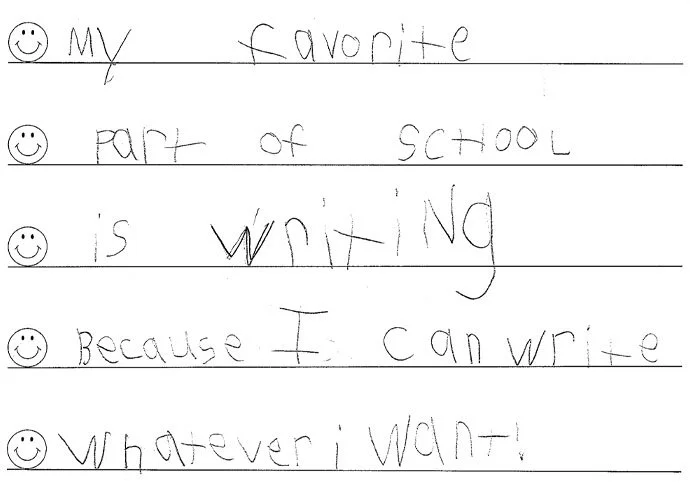 My favorite
part of SCHOOL
is writiNg
Because I can write
Whatever i want!